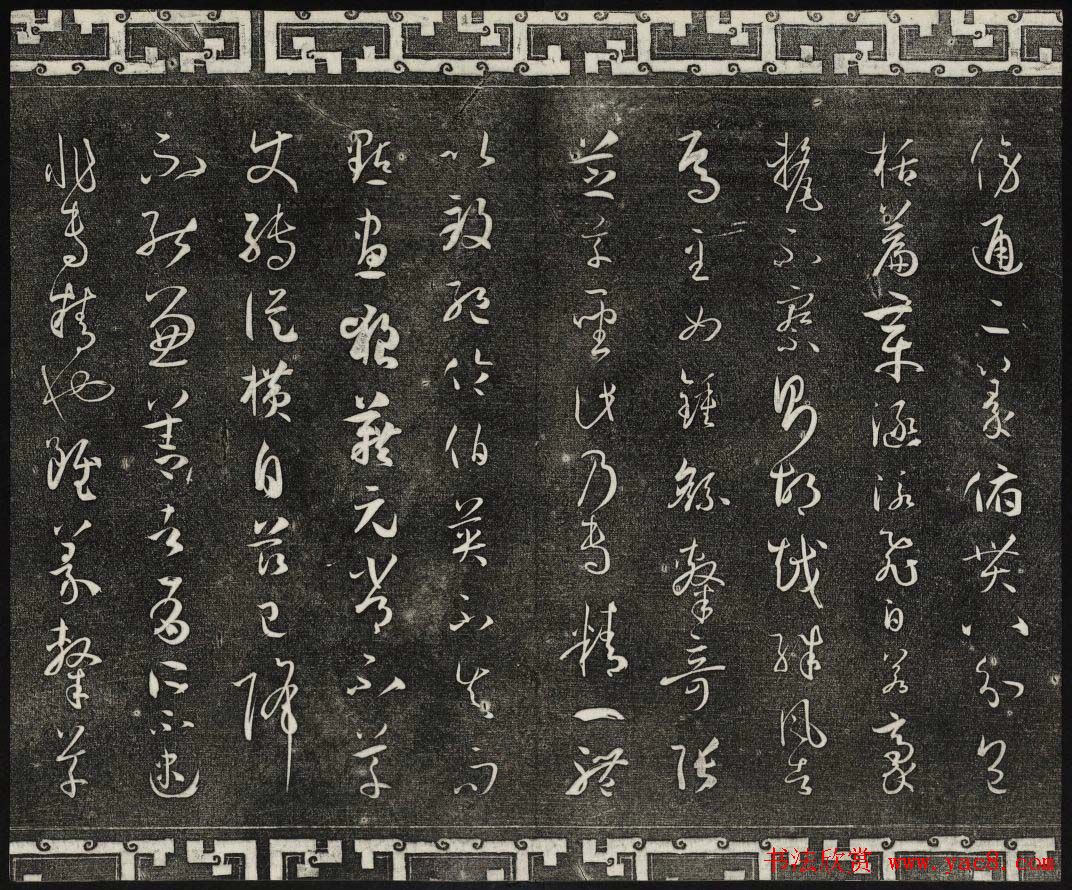 傍通二篆俯貫八分包
括篇章涵泳飛白若豪
氂不察則胡越殊風者
焉至如鍾繇隸奇張
芝草聖此乃專精一體
以致絕倫伯英不真而
點畫狼藉元常不草
使轉縱橫自茲已降
不能兼善者有所不逮
非專精也雖篆隸草
书法欣赏 www.yac8.com